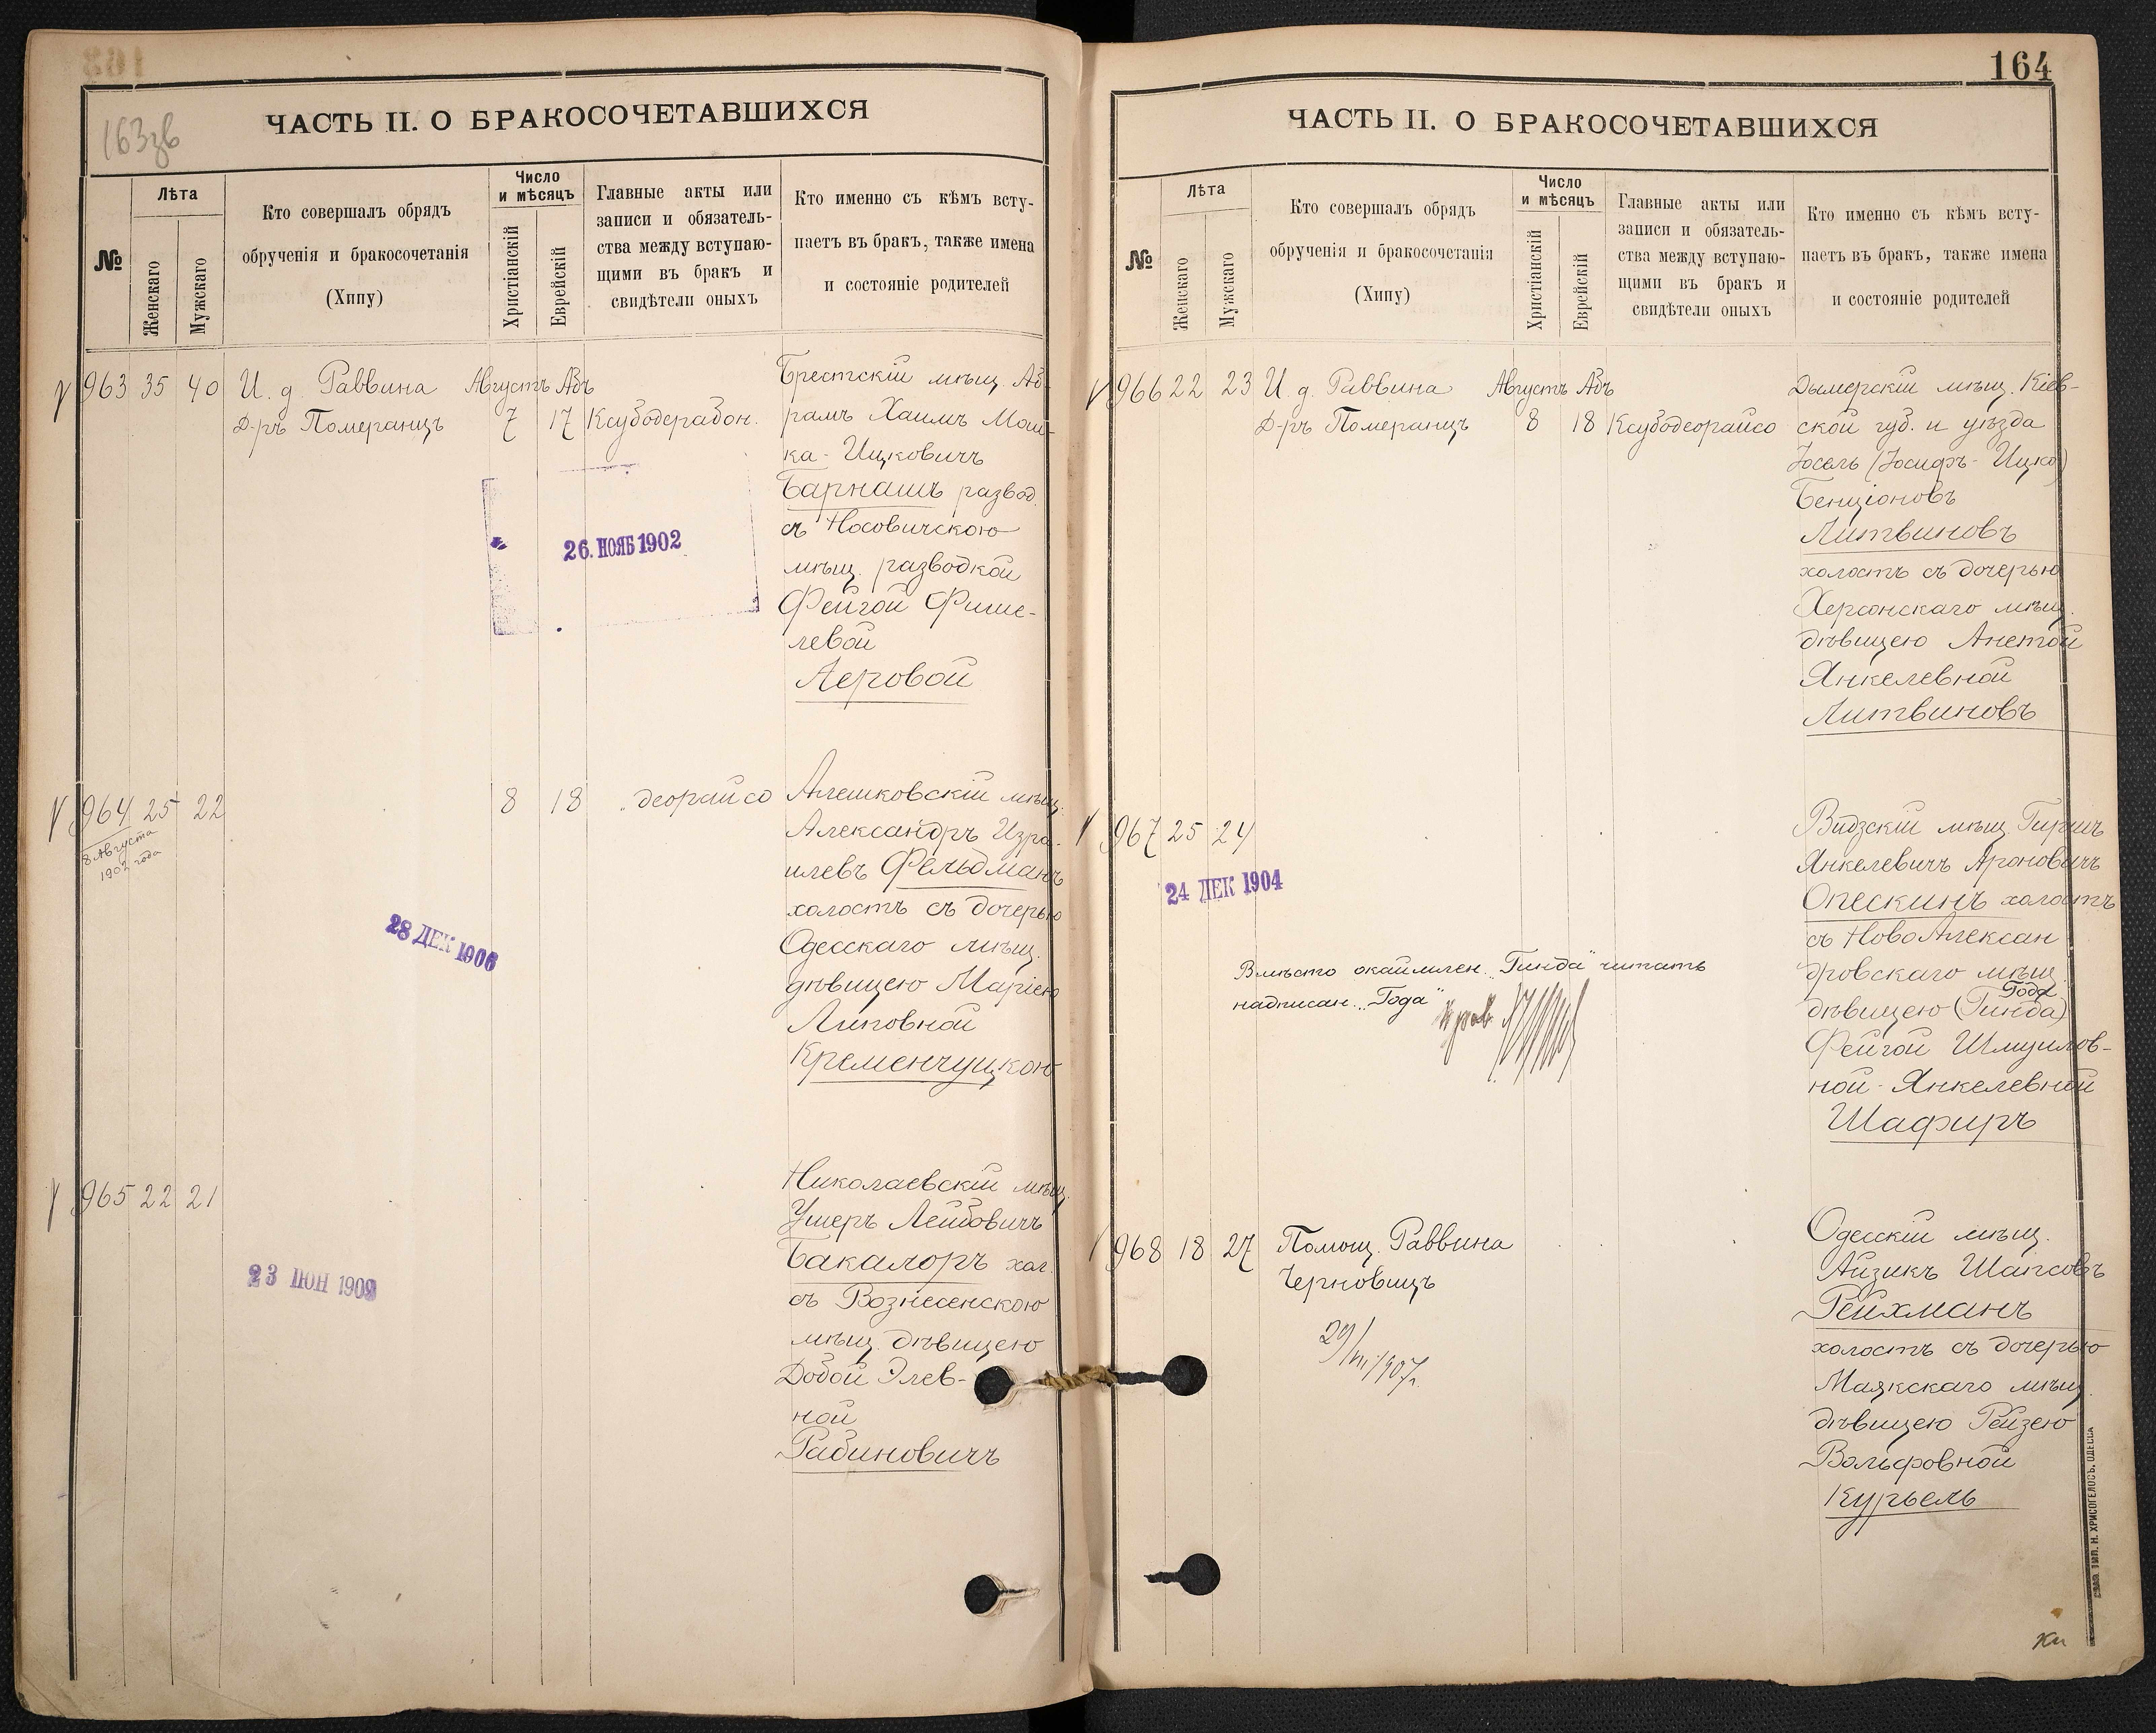 163зв
ЧАСТЬ II. О БРАКОСОЧЕТАВШИХСЯ
№
Лѣта
Женскаго
Мужскаго
Кто совершалъ обрядъ
обрученія и бракосочетанія
(Хипу)
Число
и мѣсяцъ
Христіанскій
Еврейскій
Главные акты или
записи и обязатель-
ства между вступаю-
щими въ бракъ и
свидѣтели оныхъ
Кто именно съ кѣмъ всту-
паетъ въ бракъ, также имена
и состояніе родителей
963 35 40 И. д. Раввина Августъ Абъ
Д-ръ Померанцъ 7 17 Ксубодерабон.
Брестскій мѣщ. Аб-
рамъ Хаимъ Мош-
ка-Ицковичъ
Барнашъ развод.
съ Носовичскою
мѣщ. разводкой
Фейгой Фише-
левой
Леровой
26. НОЯБ 1902
964 25 22 8 18 деорайсо
8 Августа
1902 года
Алешковскій мѣщ.
Александръ Изра-
илевъ Фельдманъ
холостъ съ дочерью
Одесскаго мѣщ.
дѣвицею Маріею
Липовной
Кременчуцкою
28 ДЕК 1906
965 22 21
Николаевскій мѣщ.
Ушеръ Лейбовичъ
Бакалоръ хол.
съ Вознесенскою
мѣщ. дѣвицею
Добой Элев-
ной
Рабиновичъ
23 ІЮН 1909
164
ЧАСТЬ II. О БРАКОСОЧЕТАВШИХСЯ
№
Лѣта
Женскаго
Мужскаго
Кто совершалъ обрядъ
обрученія и бракосочетанія
(Хипу)
Число
и мѣсяцъ
Христіанскій
Еврейскій
Главные акты или
записи и обязатель-
ства между вступаю-
щими въ бракъ и
свидѣтели оныхъ
Кто именно съ кѣмъ всту-
паетъ въ бракъ, также имена
и состояніе родителей
966 22 23 И. д. Раввина Августъ Абъ
Д-ръ Померанцъ 8 18 Ксубодеорайсо
Дымерскій мѣщ. Кіев-
ской губ. и уѣзда
Іосель (Іосифъ-Ицко)
Бенціоновъ
Литвиновъ
холостъ съ дочерью
Херсонскаго мѣщ.
дѣвицею Анетой
Янкелевной
Литвиновъ
967 25 24
24 ДЕК 1904
Видзскій мѣщ. Гиршъ
Янкелевичъ Ароновичъ
Опескинъ холостъ
съ НовоАлексан
дровскаго мѣщ.
Года
дѣвицею (Гинда)
Фейгой Шмуилов-
ной-Янкелевной
Шафиръ
Вмѣсто окаймлен. "Гинда" читать
надписан. "Года"
968 18 27 Помощ. Раввина
Черновицъ
29/VII 1907 г.
Одесскій мѣщ.
Айзикъ Шапсовъ
Рейхманъ
холостъ съ дочерью
Маякскаго мѣщ.
дѣвицею Рейзею
Вольфовной
Курьель
ТИП. Н. ХРИСОГЕЛОСЪ. ОДЕССА